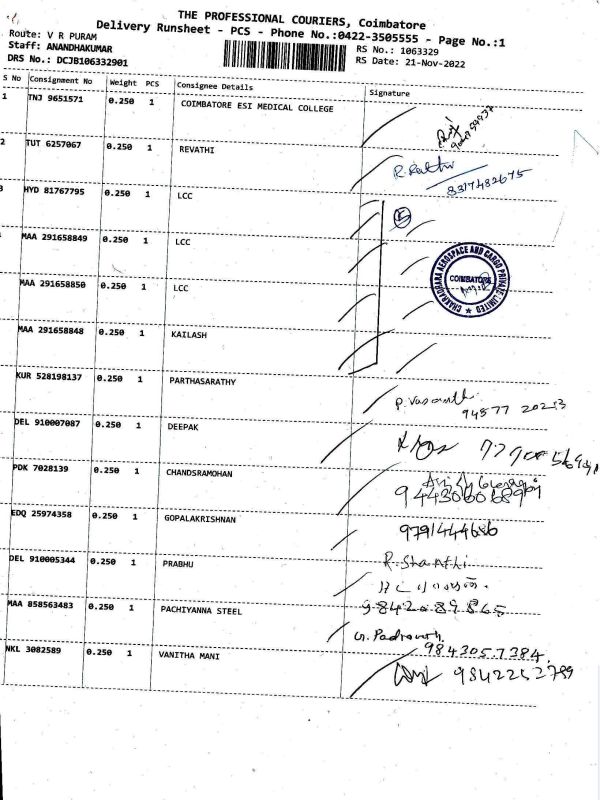 THE PROFESSIONAL COURIERS, Coimbatore
Delivery Runsheet - PCS - Phone No.:0422-3505555 - Page No.:1
Route: V R PURAM
Staff: ANANDHAKUMAR
DRS No.: DCJB106332901
RS No.: 1063329
RS Date: 21-Nov-2022
S No Consignment No Weight PCS Consignee Details Signature
1 TNJ 9651571 0.250 1 COIMBATORE ESI MEDICAL COLLEGE
2 TUT 6257067 0.250 1 REVATHI
8317482675
3 HYD 81767795 0.250 1 LCC
MAA 291658849 0.250 1 LCC
CHAKRADHARA AEROSPACE AND CARGO PRIVATE LIMITED
COIMBATORE
MAA 291658850 0.250 1 LCC
MAA 291658848 0.250 1 KAILASH
KUR 528198137 0.250 1 PARTHASARATHY
P. Vasanth
94577 20213
DEL 910007087 0.250 1 DEEPAK
PDK 7028139 0.250 1 CHANDSRAMOHAN
EDQ 25974358 0.250 1 GOPALAKRISHNAN
9791444686
DEL 910005344 0.250 1 PRABHU
R. Shanthi
MAA 858563483 0.250 1 PACHIYANNA STEEL
9842089865
984305.7384
NKL 3082589 0.250 1 VANITHA MANI
9842252789